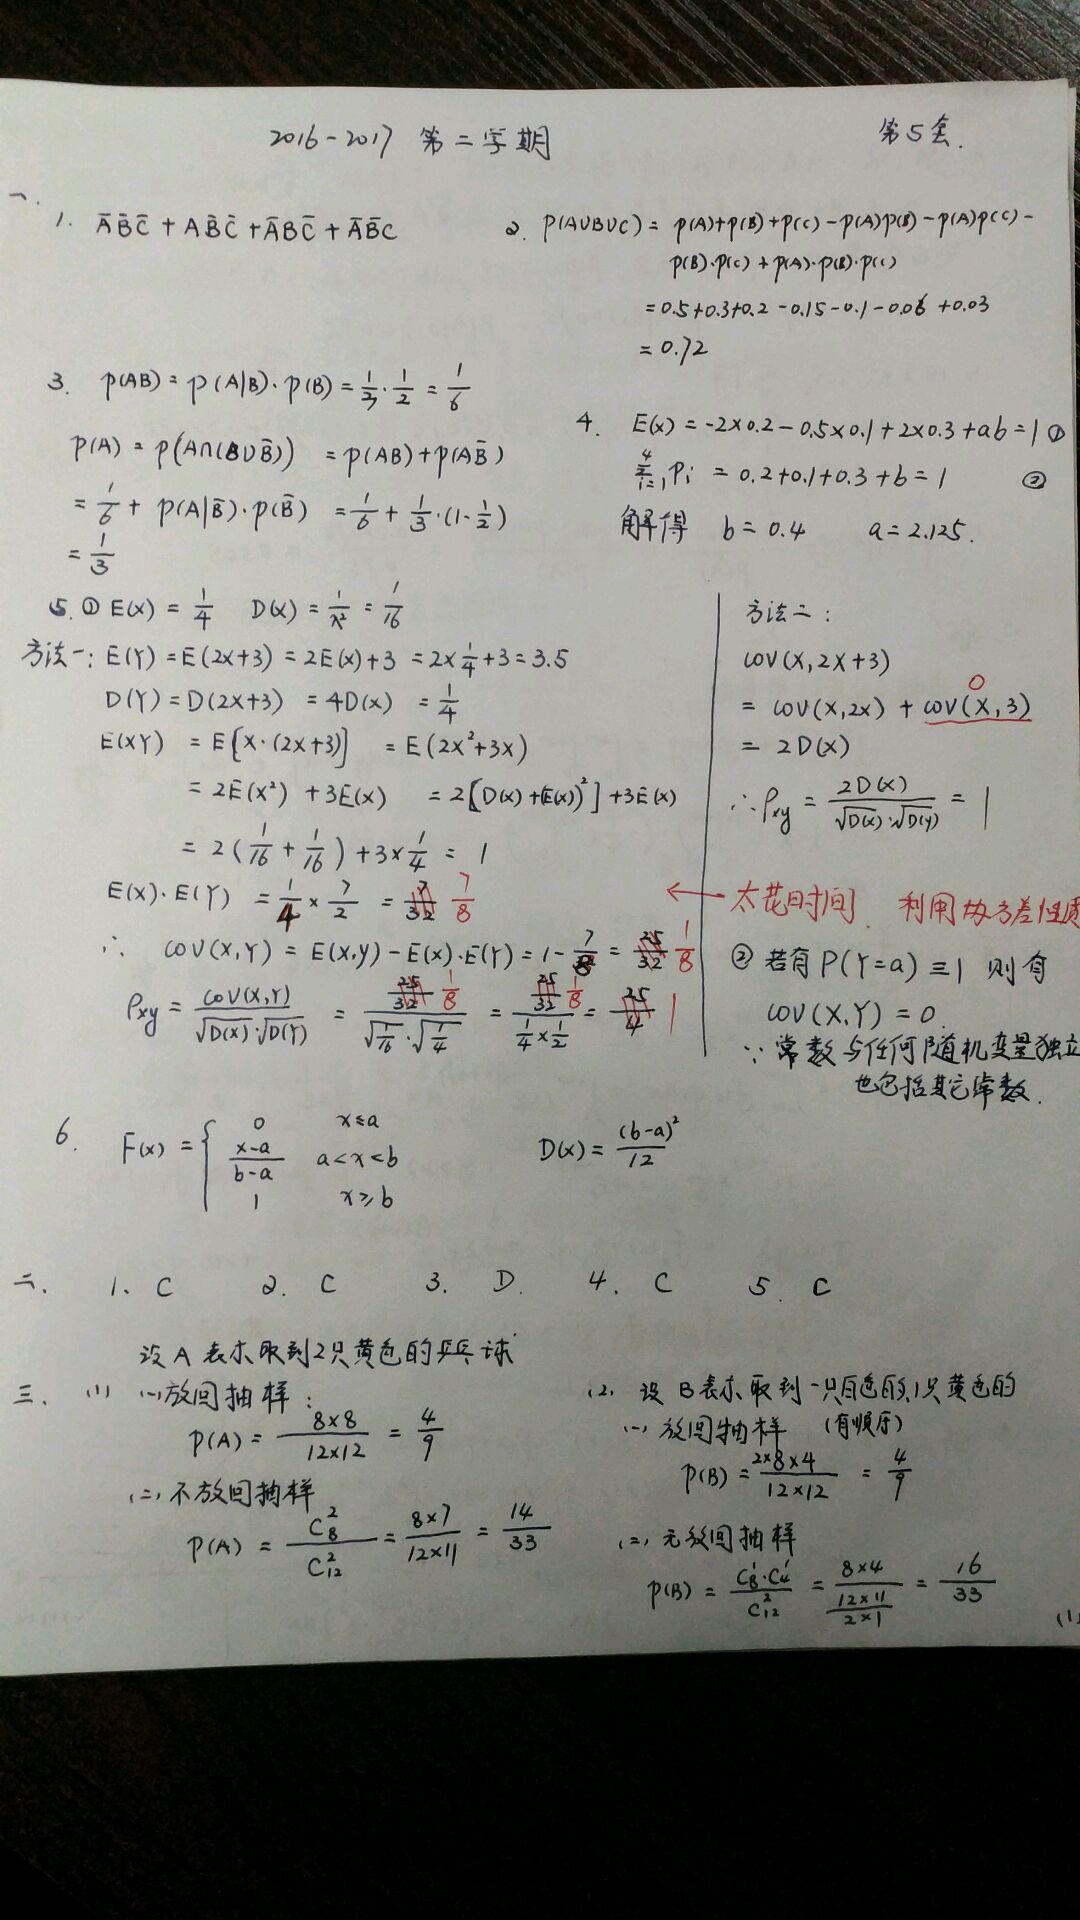 2016-2017 第二学期
第5套.
一.
1. A̅B̅C̅ + AB̅C̅ + A̅BC̅ + A̅B̅C
2. P(A∪B∪C) = P(A)+P(B)+P(C)-P(A)P(B)-P(A)P(C)-
P(B)·P(C)+P(A)·P(B)·P(C)
=0.5+0.3+0.2-0.15-0.1-0.06+0.03
=0.72
3. P(AB)=P(A|B)·P(B)=1/3·1/2=1/6
P(A)=P(A∩(B∪B̅)) =P(AB)+P(AB̅)
=1/6+P(A|B̅)·P(B̅) =1/6+1/3·(1-1/2)
=1/3
4. E(x)=-2×0.2-0.5×0.1+2×0.3+ab=1 ①
∑_{i=1}^{4} Pi =0.2+0.1+0.3+b=1 ②
解得 b=0.4 a=2.125.
5. ① E(X)=1/4 D(X)=1/λ²=1/16
方法一: E(Y)=E(2X+3)=2E(X)+3=2×1/4+3=3.5
D(Y)=D(2X+3) =4D(X) =1/4
E(XY) =E[X·(2X+3)] =E(2X²+3X)
=2E(X²)+3E(X) =2[D(X)+(E(X))²]+3E(X)
=2(1/16+1/16)+3×1/4=1
E(X)·E(Y) =1/4×7/2=7/32 7/8
∴ COV(X,Y)=E(X,Y)-E(X)·E(Y)=1-7/8=25/32 1/8
ρxy=COV(X,Y)/(√D(X)·√D(Y)) =25/32 1/8/(√1/16·√1/4) =25/32 1/8/(1/4×1/2)=25/4 1
方法二:
COV(X,2X+3)
0
=COV(X,2X)+COV(X,3)
=2D(X)
∴ρxy=2D(X)/(√D(X)·√D(Y))=1
← 太花时间. 利用协方差性质
② 若有P(Y=a)≡1 则有
COV(X,Y)=0.
∵常数与任何随机变量独立
也包括其它常数.
6. F(x)={ 0 x≤a
(x-a)/(b-a) a<x<b
1 x≥b
D(X)=(b-a)²/12
二. 1. C 2. C 3. D. 4. C 5. C
设A表示取到2只黄色的乒乓球
三. (1) (一)放回抽样:
P(A)=8×8/12×12=4/9
(二)不放回抽样
P(A)=C₈²/C₁₂²=8×7/12×11=14/33
(2) 设B表示取到一只白色的,1只黄色的
(一)放回抽样 (有顺序)
P(B)=2×8×4/12×12=4/9
(二)无放回抽样
P(B)=C₈¹·C₄¹/C₁₂²=8×4/(12×11/2×1)=16/33
(1)